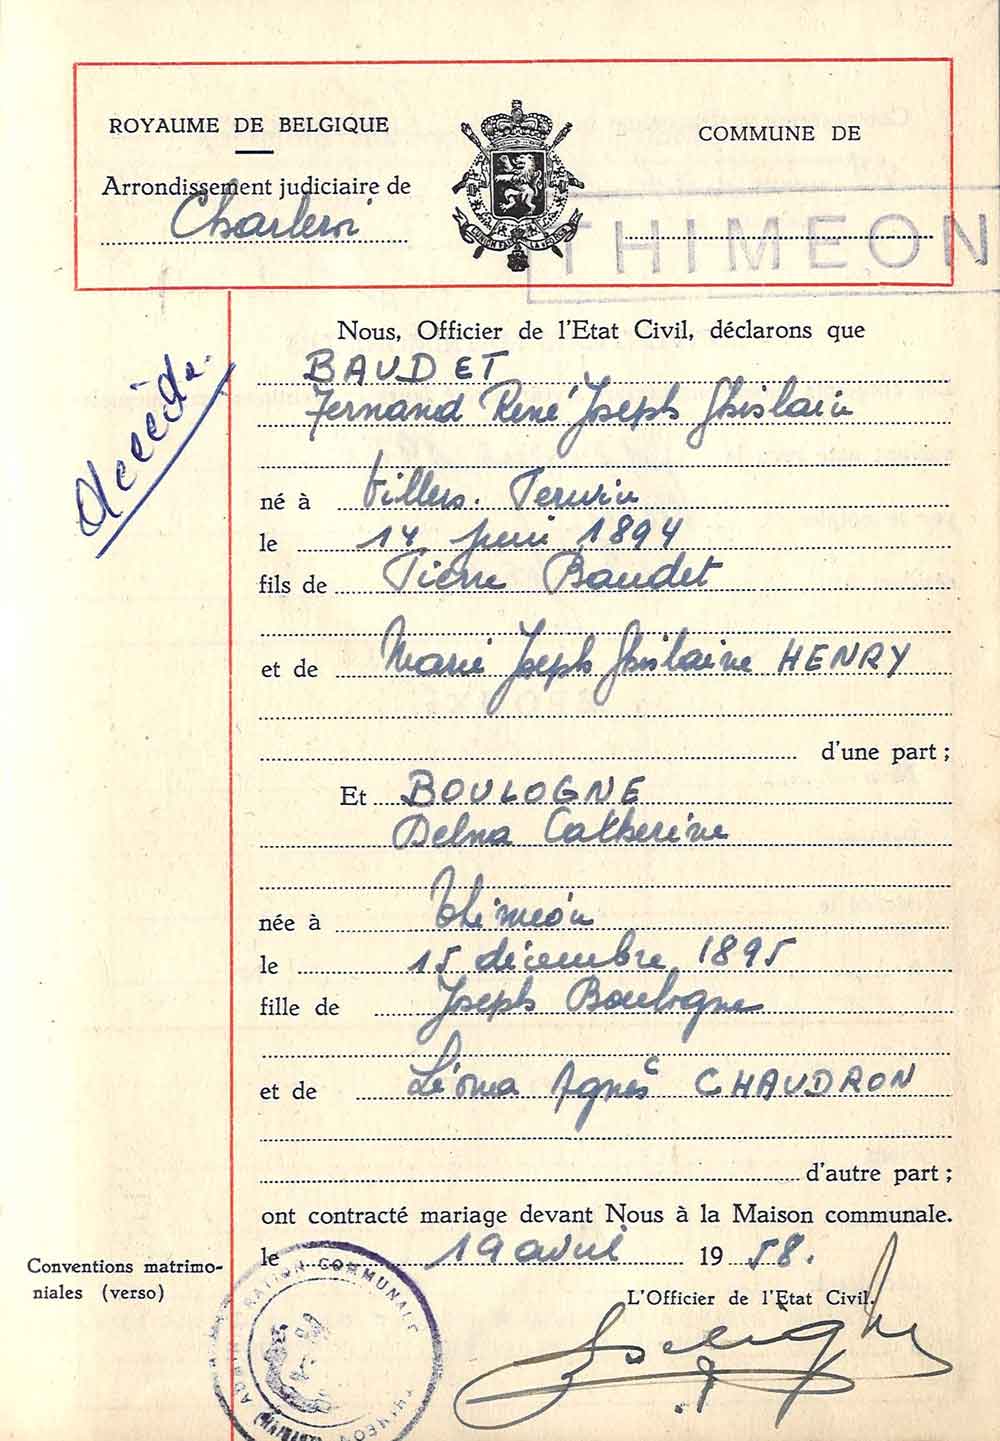 ROYAUME DE BELGIQUE
Arrondissement judiciaire de
Charleroi
COMMUNE DE
THIMEON
L'UNION FAIT LA FORCE
décédé.
Nous, Officier de l'Etat Civil, déclarons que
BAUDET
Fernand René Joseph Ghislain
né à Villers. Perwin
le 14 juin 1894
fils de Pierre Baudet
et de Marie Joseph Ghislaine HENRY
d'une part ;
Et BOULOGNE
Delna Catherine
née à Thiméon
le 15 décembre 1895
fille de Joseph Boulogne
et de Léona Agnès CHAUDRON
d'autre part ;
ont contracté mariage devant Nous à la Maison communale.
le 19 avril 19 58.
Conventions matrimo-
niales (verso)
L'Officier de l'Etat Civil.
ADMINISTRATION COMMUNALE
THIMEON